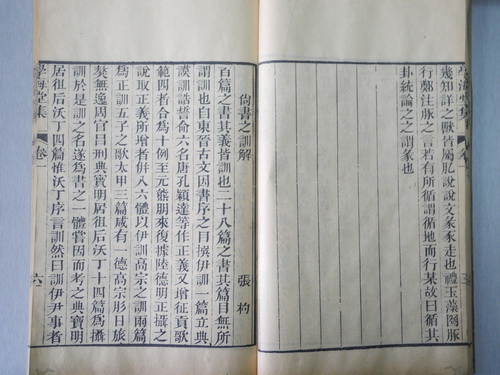 幾知詳之獸皆屬肊說說文彖豕走也禮玉藻圈豚
行鄭注豚之言若有所循謂循地而行某故曰循其
卦統論之之謂彖也
尙書之訓解
張杓
百篇之書其義皆訓也二十八篇之書其篇目無所
謂訓也自東晉古文因書序之目撰伊訓一篇立典
謨訓誥誓命六名唐孔穎達等作正義又增征貢歌
範四者合爲十至元熊朋來復據陸德明正攝之
說取正義所增者併入六體以伊訓高宗之訓兩篇
爲正訓五子之歌太甲三篇咸有一德高宗肜日旅
獒無逸周官呂刑典寶明居徂后沃丁十四篇爲攝
訓於是訓之名遂爲書之一體嘗因而考之典寶明
居徂后沃丁四篇惟沃丁序言訓然曰訓伊尹事者
學海堂集
卷一
六